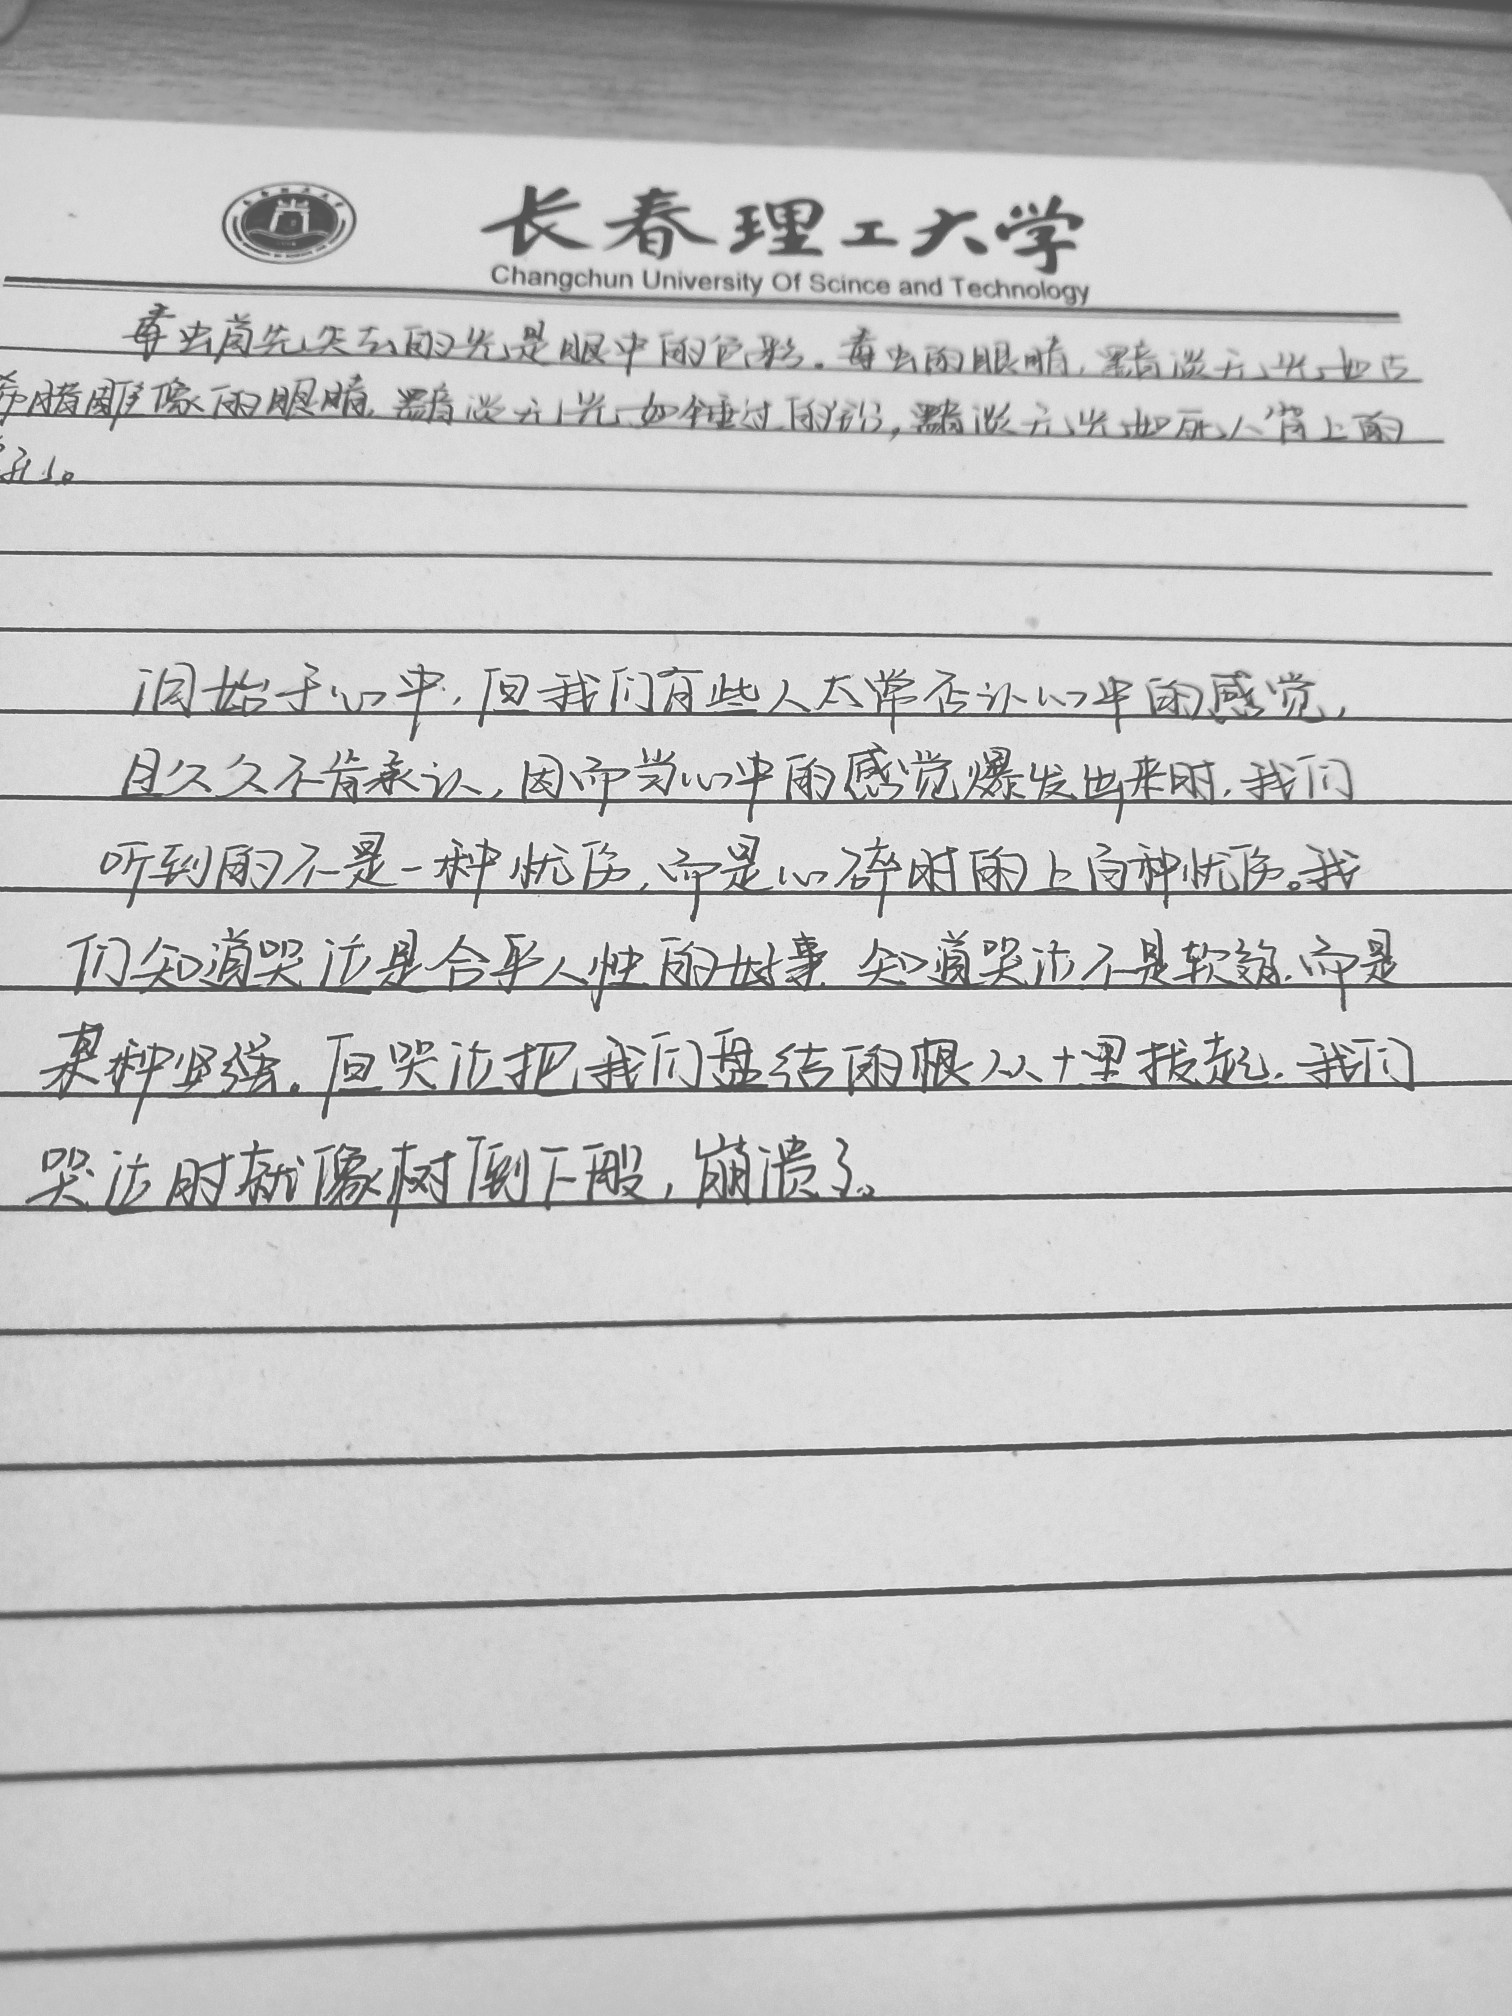 长春理工大学
Changchun University Of Scince and Technology
毒虫首先失去的光是眼中的色彩。毒虫的眼睛,黯淡无光如古
希腊雕像的眼睛,黯淡无光如锤过的铅,黯淡无光如死人背上的
泪始于心中,但我们有些人太常否认心中的感觉,
且久久不肯承认,因而当心中的感觉爆发出来时,我们
听到的不是一种忧伤,而是心碎时的上百种忧伤。我
们知道哭泣是合乎人性的好事 知道哭泣不是软弱,而是
某种坚强。但哭泣把我们盘结的根从土里拔起,我们
哭泣时就像树倒下般,崩溃了。